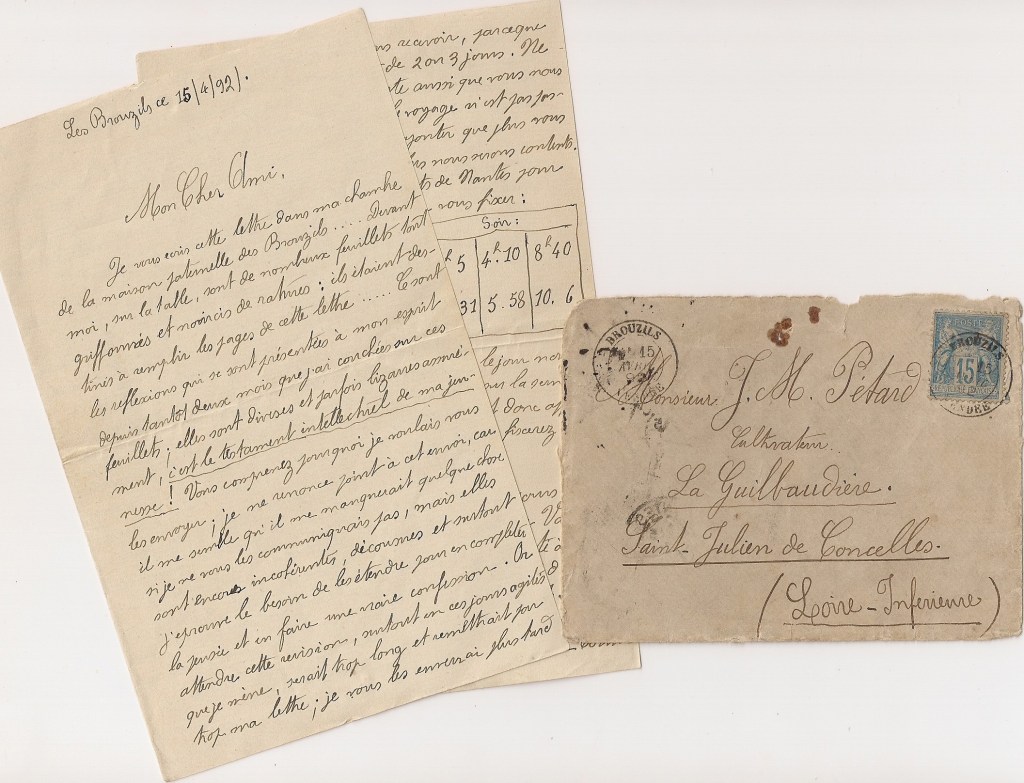 Les Brouzils ce 15/4/92).
Mon Cher Ami,
Je vous écris cette lettre dans ma chambre
de la maison paternelle des Brouzils ..... Devant
moi, sur la table, sont de nombreux feuillets tout
griffonnés et noircis de ratures : ils étaient des-
tinés à remplir les pages de cette lettre ..... Ce sont
les réflexions qui se sont présentées à mon esprit
depuis tantôt deux mois que j'ai couchées sur ces
feuillets ; elles sont diverses et parfois bizarres assuré-
ment, c'est le testament intellectuel de ma jeu-
nesse ! Vous comprenez pourquoi je voulais vous
les envoyer ; je ne renonce point à cet envoi, car
il me semble qu'il me manquerait quelque chose
si je ne vous les communiquais pas, mais elles
sont encore incohérentes, décousues et surtout
j'éprouve le besoin de les étendre pour en compléter
la pensée et en faire une vraie confession. Or
attendre cette révision, surtout en ces jours agités
que je mène, serait trop long et remettrait par
trop ma lettre ; je vous les enverrai plus tard
recevoir, parceque
de 2 ou 3 jours. Ne
aussi que vous nous
voyage n'est pas pos-
que plus vous
nous serons contents.
de Nantes pour
vous fixer :
Soir :
h 5 4h.10 8h40
31 5.58 10.6
le jour
donc
fixerez
BROUZILS
15
AVRIL
92
Monsieur J. M. Pétard
Cultivateur
La Guilbaudière.
Saint-Julien de Concelles.
(Loire-Inférieure)
POSTE
15
BROUZILS
15
VENDÉE